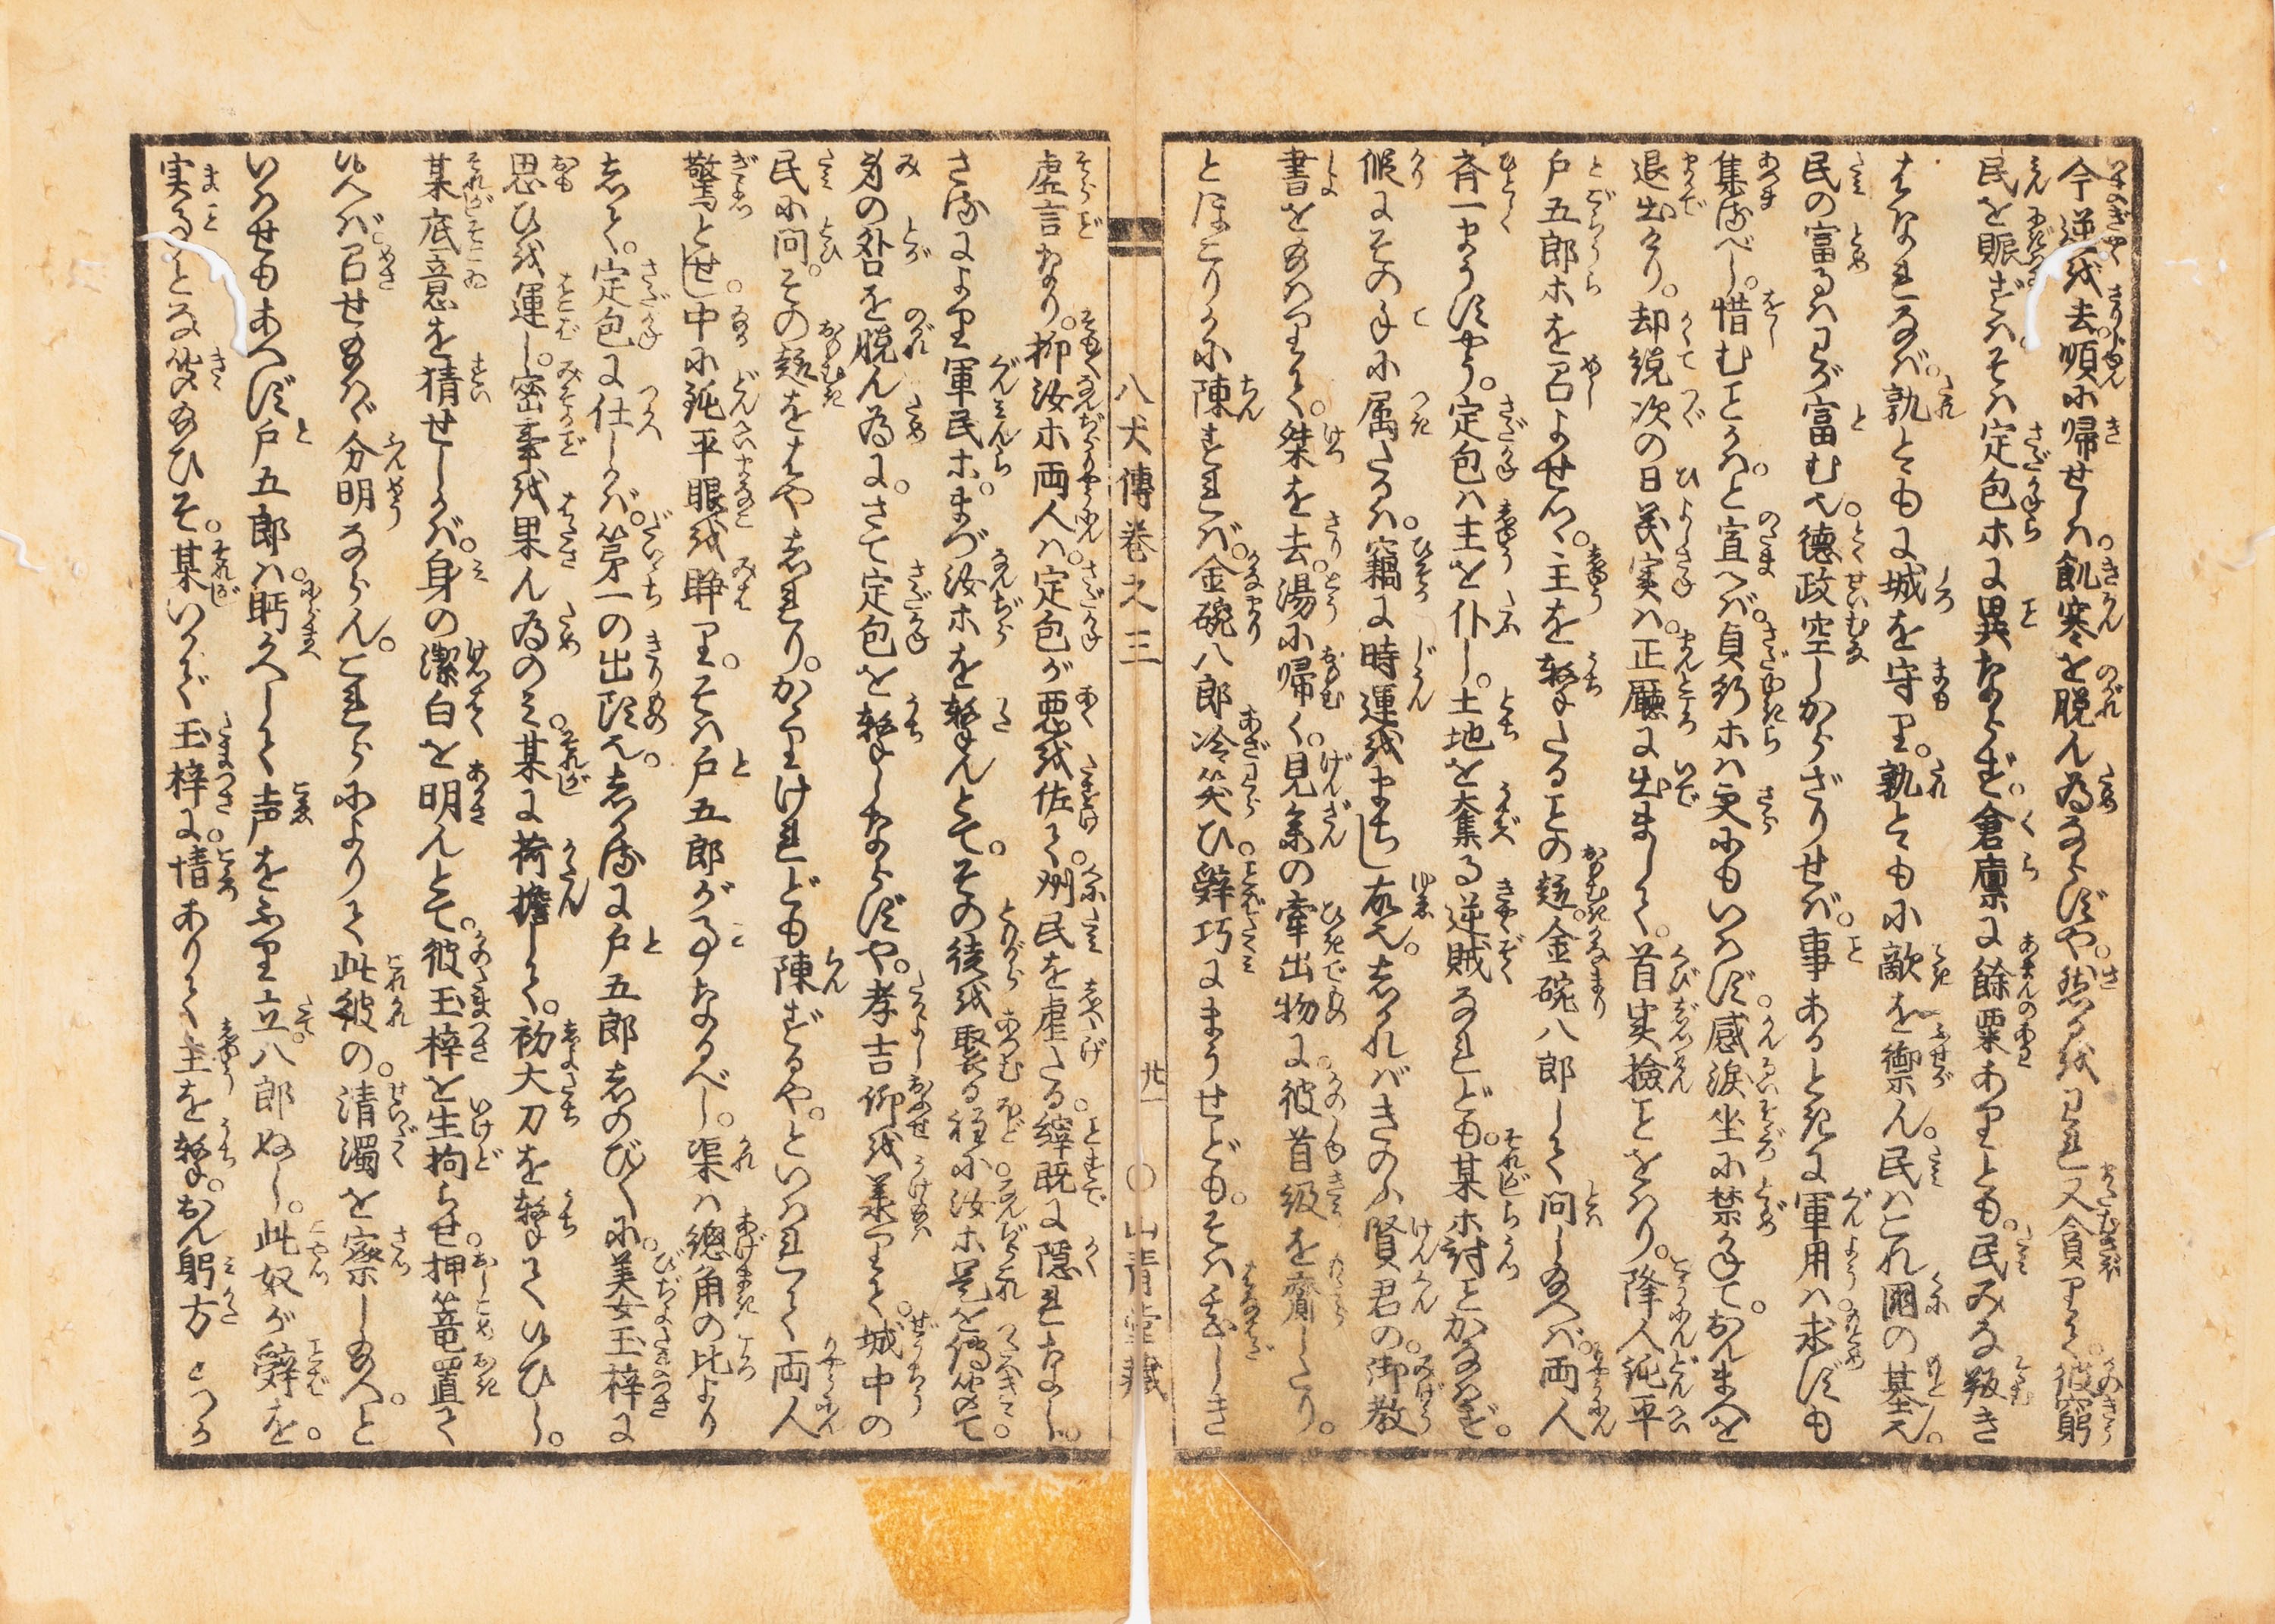 今逆を去順に帰せしは。飢寒を脱ん為ならずや。然るをわれ又貪りて。彼窮
民を賑さずは。そは定包等に異ならず。倉廩に餘粟ありとも。民みな叛き
はなれなば。孰とゝもに城を守り。孰とゝもに敵を禦ん。民はこれ國の基也。
民の富るはわが富む也。德政空しからざりせば。事あるときに軍用は。求ずも
集るべし。惜むことかは。と宣へば。貞行等は更にもいはず。感涙坐に禁かねて。おんまへを
退出けり。却説次の日義実は。正廳に出まして。首実撿ことをはり。降人鈍平
戸五郎等を召よせつ。主を撃たることの趣。金碗八郎して問し給へば。両人
斉一まうすやう。定包は主を仆し。土地を奪る逆賊なれども。某等討ことかなはず。
假にその手に属たるは。竊に時運をまちし故也。しかればきのふ賢君の。御教
書を給はりて。桀を去。湯に帰く。見参の牽出物に。彼首級を齎したり。
とほこりかに陳ずれば。金碗八郎冷笑ひ。辞巧にまうせども。そは甚しき
八犬傳巻之三
廿一
〇山青堂藏
虚言なり。抑汝等両人は。定包が悪を佐て。州民を虐たる。縡既に隠れなし。
さるにより軍民等。まづ汝等を撃んとて。その徒を聚る程に。汝等是を傳聞て。
身の咎を脱ん為に。さて定包を撃しならずや。孝吉仰を義りて。城中の
民に問。その趣をはやしれり。かゝりけれども陳ずるや。といはれて両人
驚きつ。中に鈍平眼を睜り。そは戸五郎が事なるべし。渠は總角の比より
して。定包に仕しかば。第一の出頭也。しかるに戸五郎しのび〳〵に。美女玉梓に
思ひを運し。密事を果ん為のみ。某に荷擔して。初大刀を撃て候ひし。
某底意を猜せしかば。身の潔白を明んとて。彼玉梓を生拘らせ。押篭置て
候へば。召せ給はゞ分明ならん。これらによりて此彼の。清濁を察し給へ。と
いはせもあへず戸五郎は。眄かへして声をふり立。八郎ぬし。此奴が辞を。
実ことゝな聞給ひそ。某いかで玉梓に。情ありて主を撃。おん躬方とつか